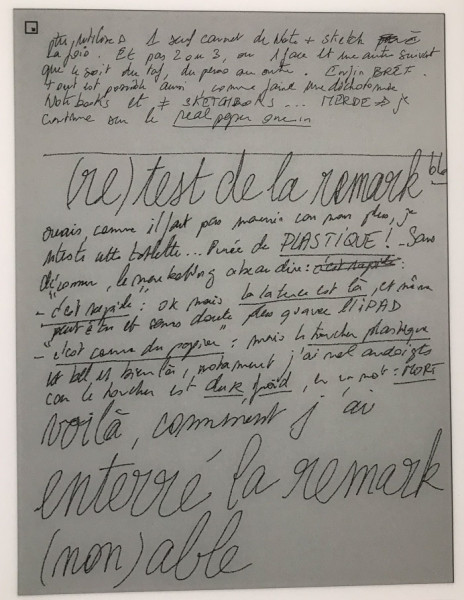 1 seul carnet de Note + sketch
la fois. Et pas 2 ou 3, ou 1 face et une autre suivant
que ce soit du taf, du perso ou autre. Enfin BREF.
tout est possible aussi, comme faire une dichotomie
Notebooks et ≠ SKETCHBOOKS... MERDE je
continue sur le real paper one in
(re)test de la remark ble
ouais, comme il faut pas mourir con non plus, je
cette tablette... Purée de PLASTIQUE! Sans
déconner, le marketing a beau dire: c'est rapide:
- "c'est rapide": ok mais la latence est là, et même
peut être et sans doute plus qu'avec l'IPAD
- "c'est comme du papier": mais le toucher plastique
est bel et bien là, notamment j'ai mal aux doigts
car le toucher est dur, froid, en un mot: MORT
voilà, comment j'ai
enterré la remark
(non)able